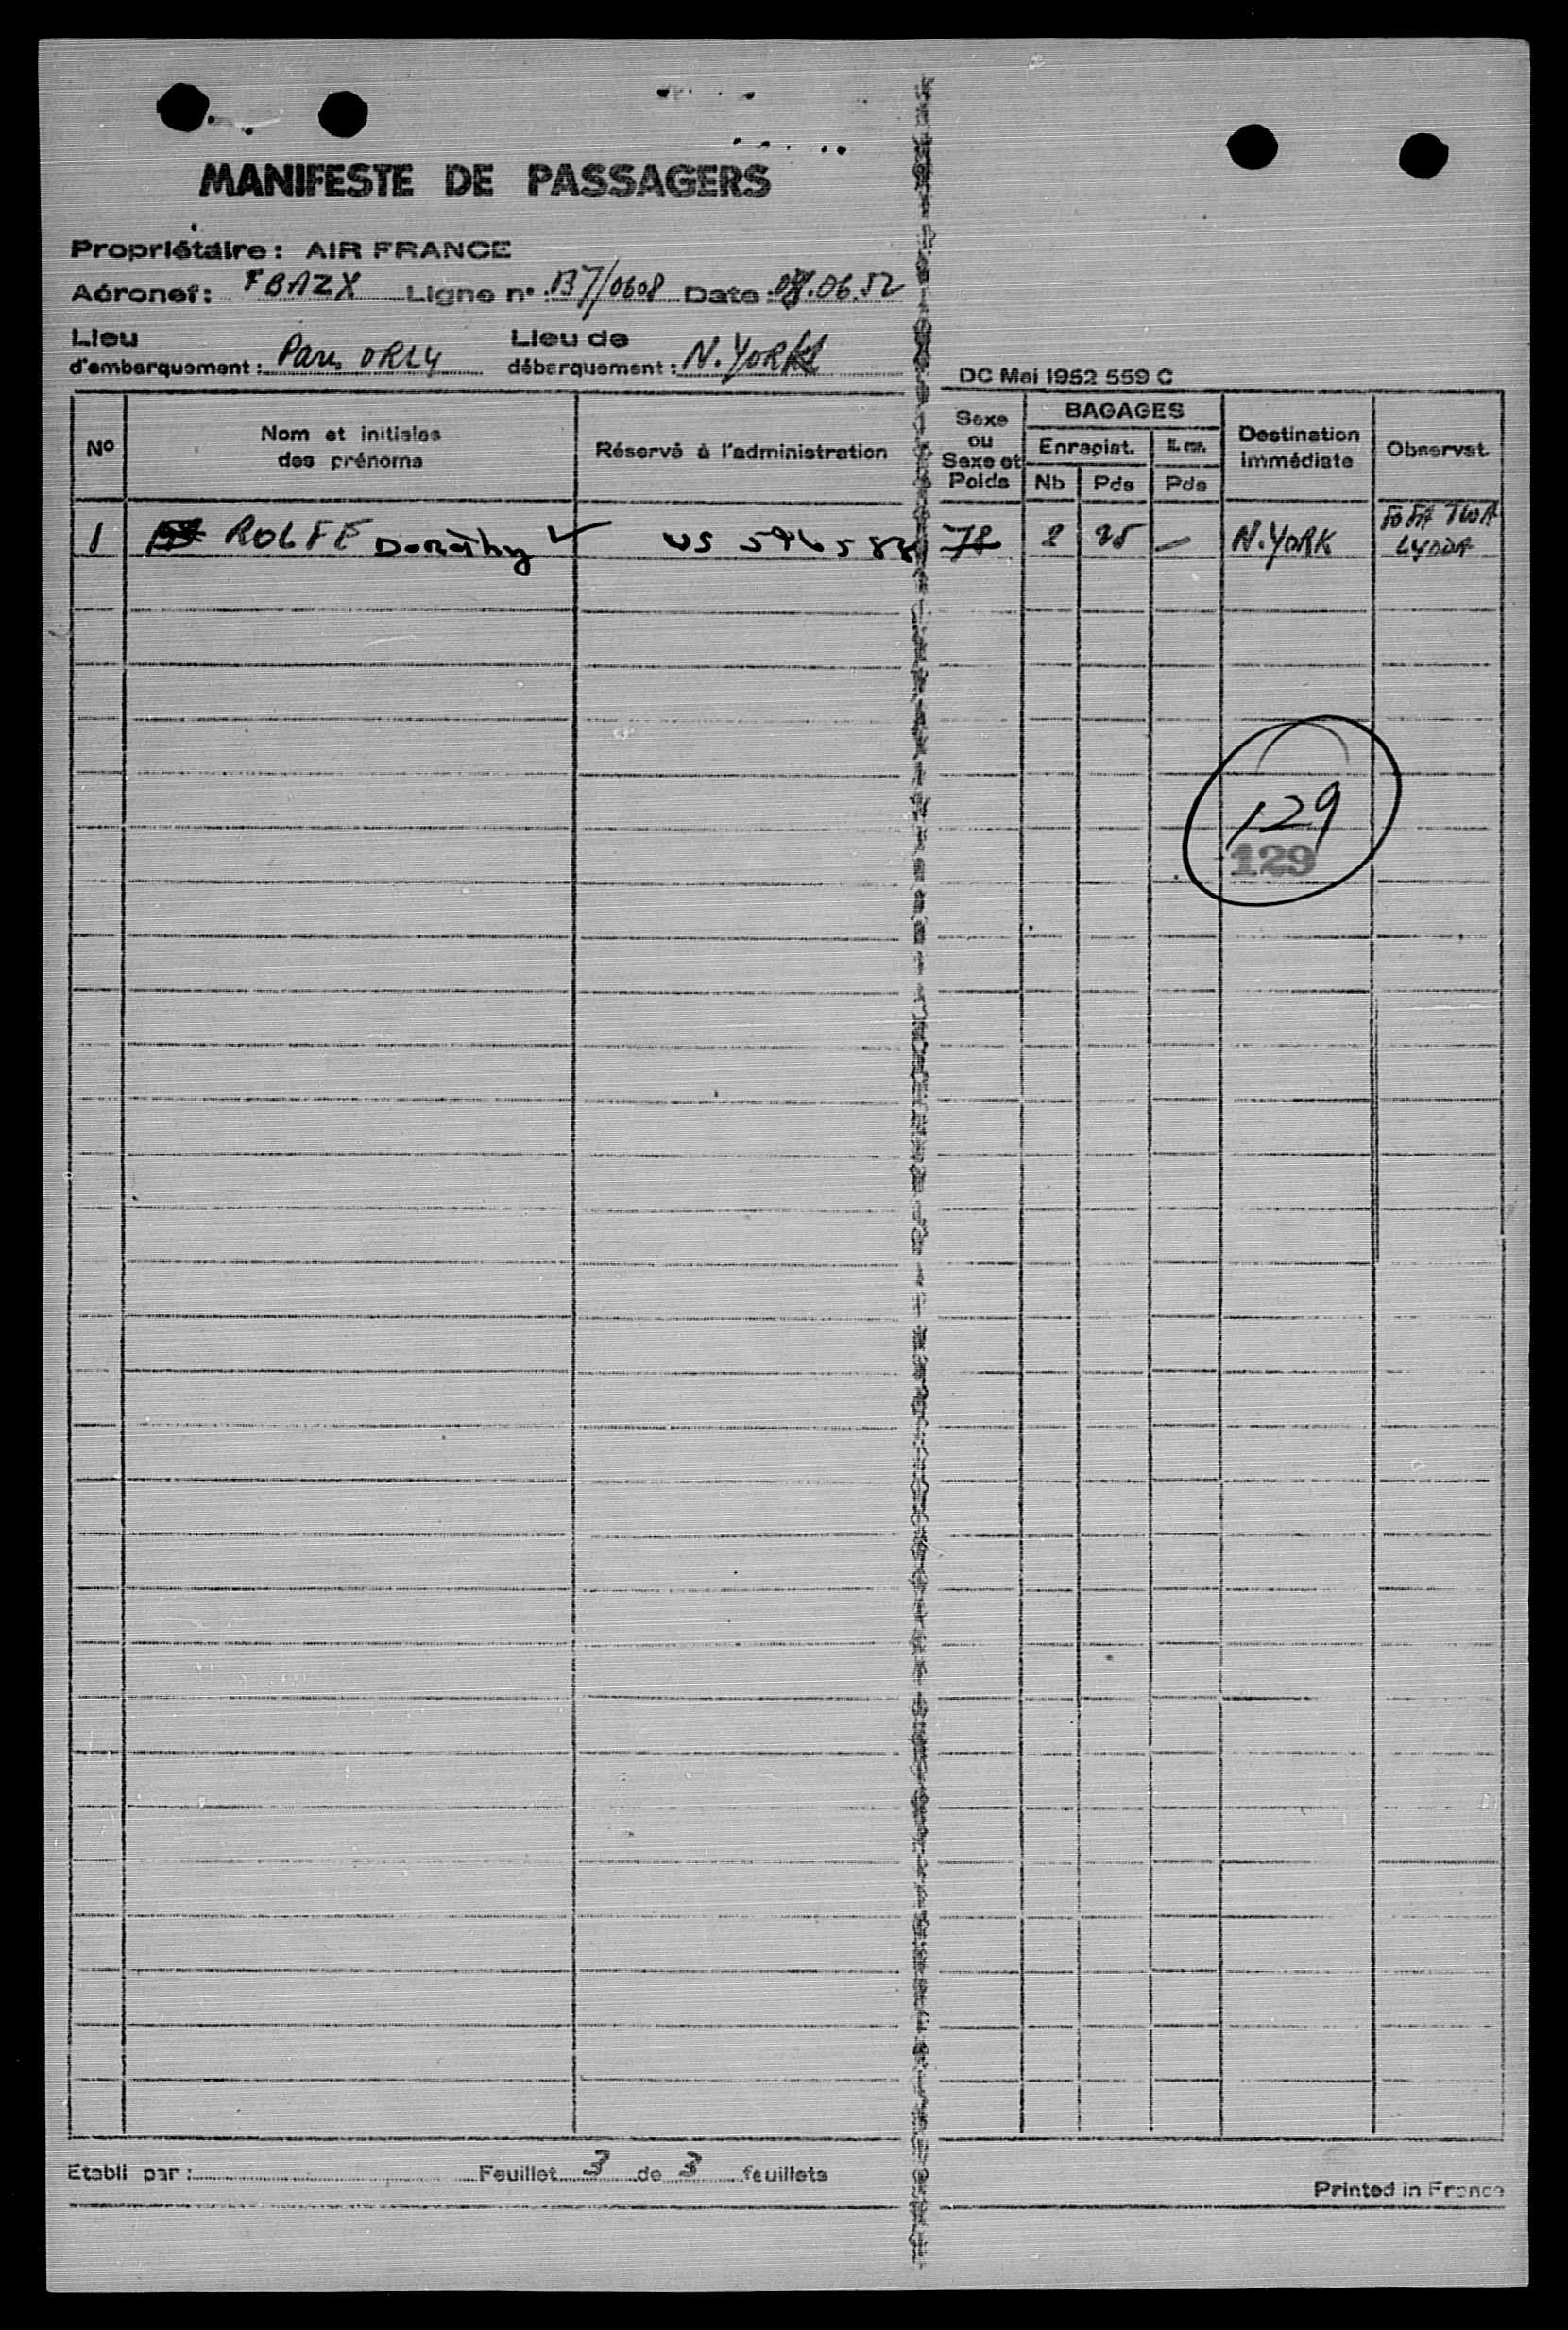 MANIFESTE DE PASSAGERS
Propriétaire: AIR FRANCE
Aéronef: FBAZX Ligne n° 137/0608 Date: 08.06.52
Lieu d'embarquement: Paris ORLY Lieu de débarquement: N. YORK
DC Mai 1952 559 C
N° Nom et initiales des prénoms Réservé à l'administration Sexe ou Sexe et Poids BAGAGES Enregist. Nb Pds Pds Destination immédiate Observat.
1 ROLFE Dorothy US 78 2 25 — N. YORK TWA LYDDA
129
129
Etabli par: Feuillet 3 de 3 feuillets
Printed in France